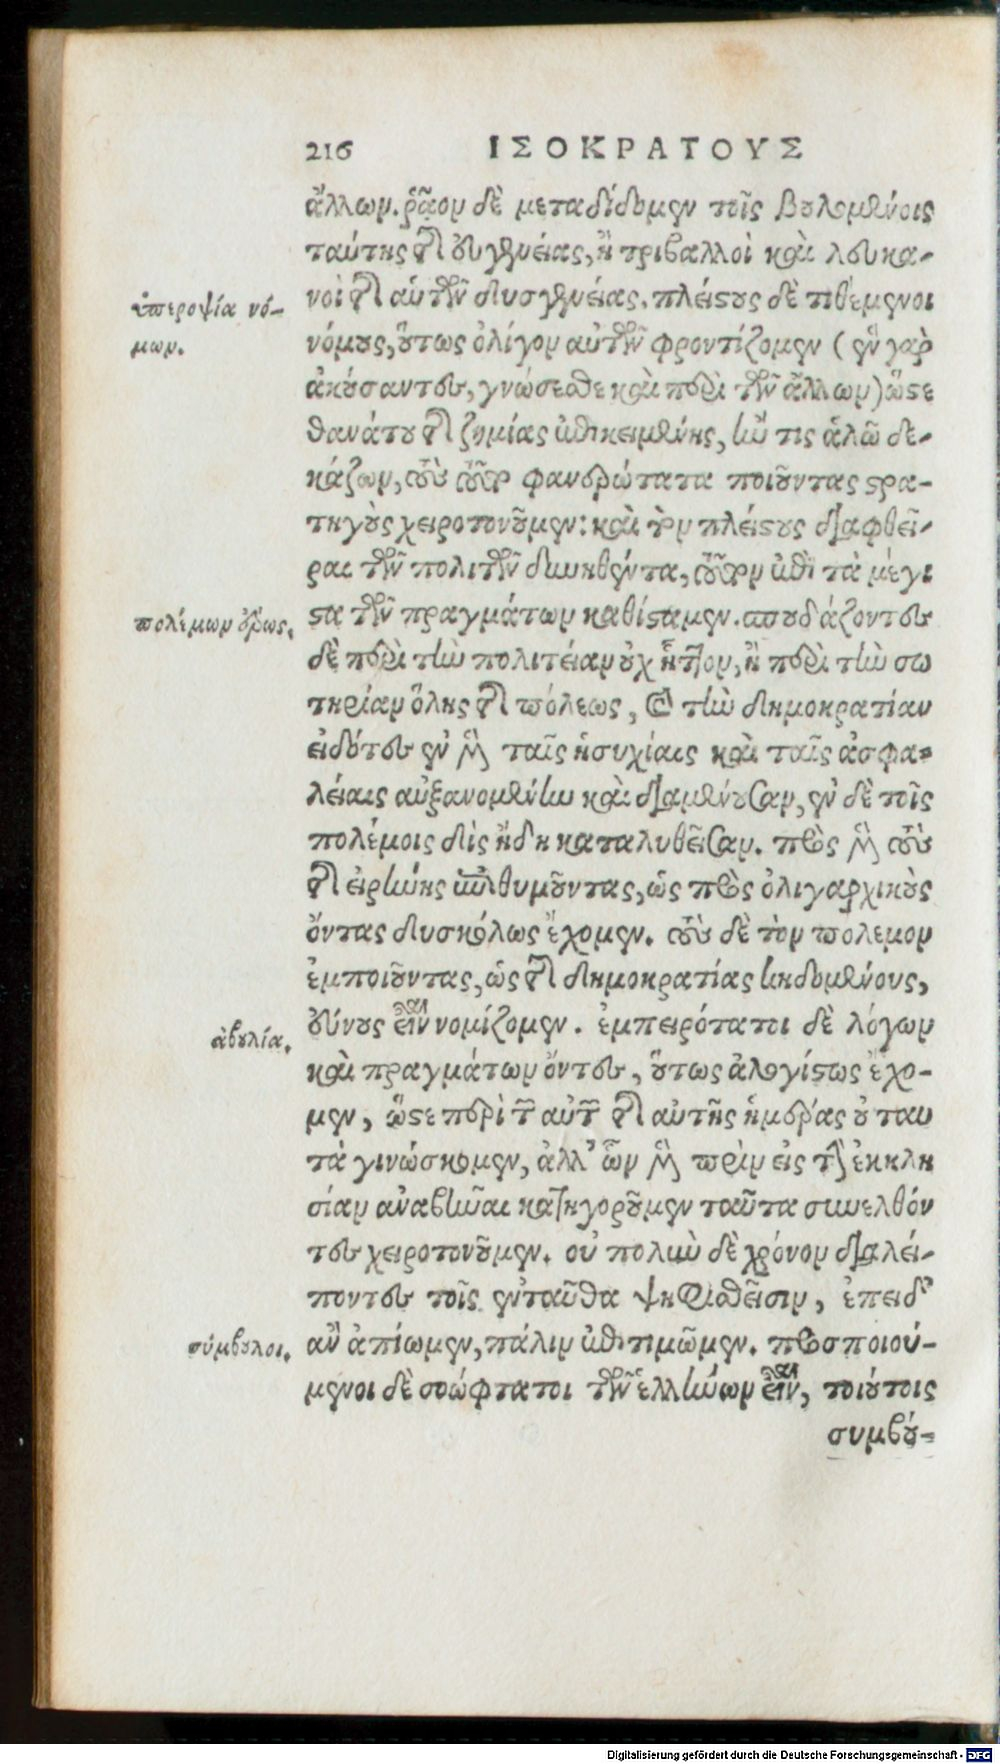 216 ΙΣΟΚΡΑΤΟΥΣ
ἄλλων. ῥᾷον δὲ μεταδίδομεν τοῖς βουλομένοις
ταύτης τῆς εὐγενείας, ἢ τριβαλλοὶ καὶ λευκα-
νοὶ τῆς αὑτῶν δυσγενείας. πλείστους δὲ τιθέμενοι
ὑπεροψία νό-
μων.
νόμους, οὕτως ὀλίγον αὐτῶν φροντίζομεν (ἓν γὰρ
ἀκούσαντες, γνώσεσθε καὶ περὶ τῶν ἄλλων) ὥστε
θανάτου τῆς ζημίας ἐπικειμένης, ἤν τις ἁλῷ δε-
κάζων, τοὺς τοῦτο φανερώτατα ποιοῦντας στρα-
τηγοὺς χειροτονοῦμεν: καὶ τὸν πλείστους διαφθεῖ-
ραι τῶν πολιτῶν δυνηθέντα, τοῦτον ἐπὶ τὰ μέγι
πολέμων ἔρως.
στα τῶν πραγμάτων καθίσταμεν. σπουδάζοντες
δὲ περὶ τὴν πολιτείαν οὐχ ἧττον, ἢ περὶ τὴν σω
τηρίαν ὅλης τῆς πόλεως, καὶ τὴν δημοκρατίαν
εἰδότες ἐν μὲν ταῖς ἡσυχίαις καὶ ταῖς ἀσφα-
λείαις αὐξανομένην καὶ διαμένουσαν, ἐν δὲ τοῖς
πολέμοις δὶς ἤδη καταλυθεῖσαν. πρὸς μὲν τοὺς
τῆς εἰρήνης ἐπιθυμοῦντας, ὡς πρὸς ὀλιγαρχικοὺς
ὄντας δυσκόλως ἔχομεν. τοὺς δὲ τὸν πόλεμον
ἐμποιοῦντας, ὡς τῆς δημοκρατίας κηδομένους,
ἀβουλία.
εὔνους εἶναι νομίζομεν. ἐμπειρότατοι δὲ λόγων
καὶ πραγμάτων ὄντες, οὕτως ἀλογίστως ἔχο-
μεν, ὥστε περὶ τῶν αὐτῶν τῆς αὐτῆς ἡμέρας οὐ ταυ
τὰ γινώσκομεν, ἀλλ' ὧν μὲν πρὶν εἰς τὴν ἐκκλη
σίαν ἀναβῆναι κατηγοροῦμεν ταῦτα συνελθόν
τες χειροτονοῦμεν. οὐ πολὺν δὲ χρόνον διαλεί-
ποντες τοῖς ἐνταῦθα ψηφισθεῖσιν, ἐπειδ'
σύμβουλοι.
ἂν ἀπίωμεν, πάλιν ἐπιτιμῶμεν. προσποιού-
μενοι δὲ σοφώτατοι τῶν ἑλλήνων εἶναι, τοιούτοις
συμβού-
Digitalisierung gefördert durch die Deutsche Forschungsgemeinschaft - DFG